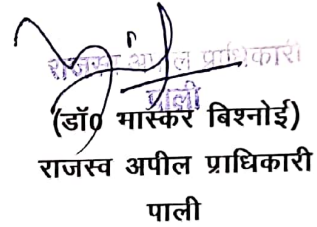 राजस्व अपील प्राधिकारी
पाली
(डॉ0 भास्कर बिश्नोई)
राजस्व अपील प्राधिकारी
पाली